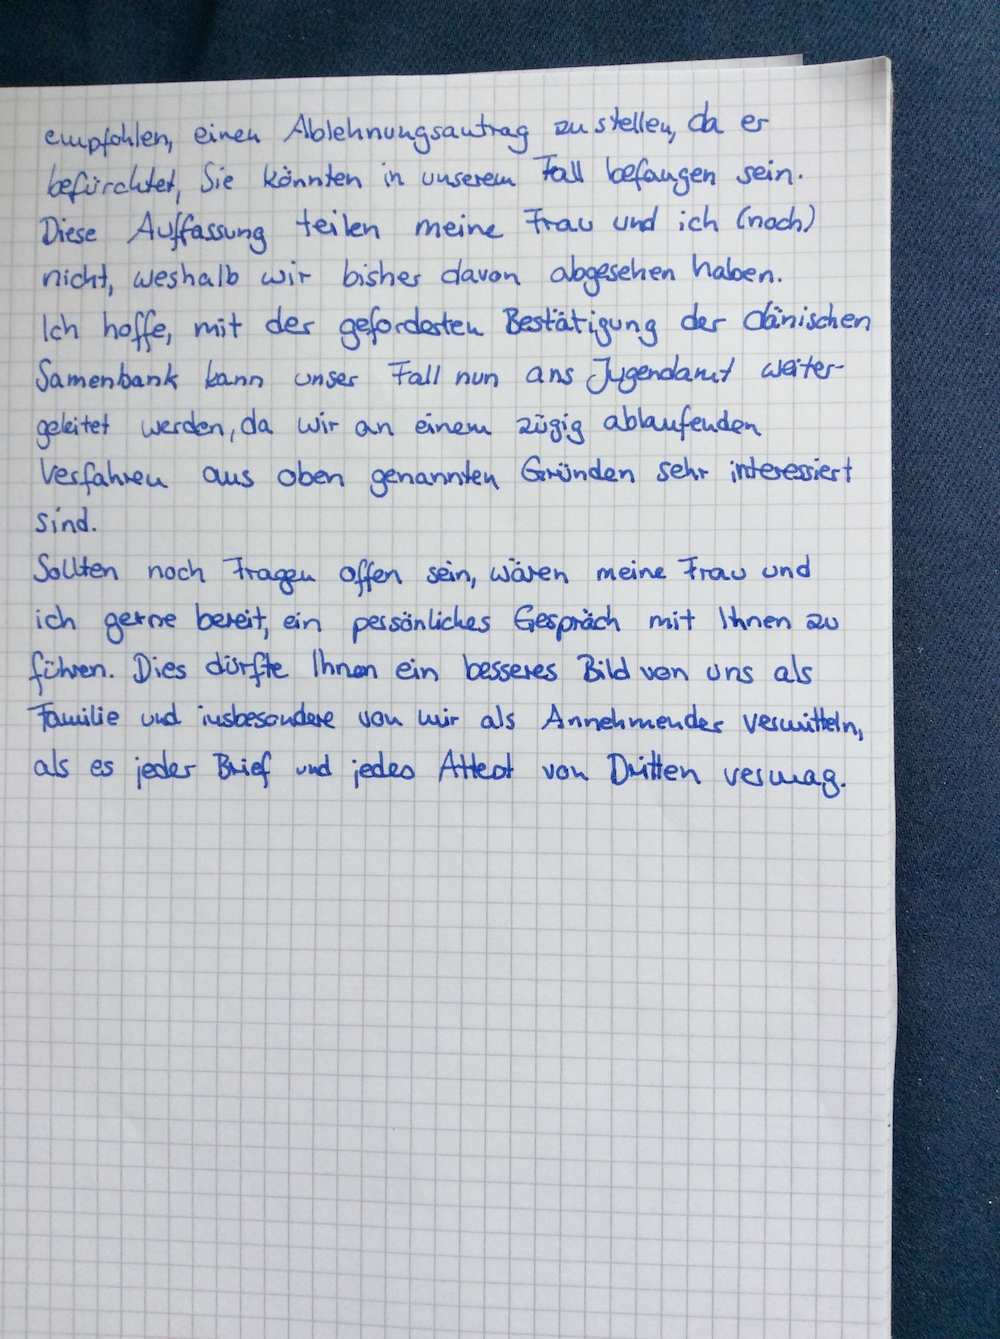 empfohlen, einen Ablehnungsantrag zu stellen, da er
befürchtet, Sie könnten in unserem Fall befangen sein.
Diese Auffassung teilen meine Frau und ich (noch)
nicht, weshalb wir bisher davon abgesehen haben.
Ich hoffe, mit der geforderten Bestätigung der dänischen
Samenbank kann unser Fall nun ans Jugendamt weiter-
geleitet werden, da wir an einem zügig ablaufenden
Verfahren aus oben genannten Gründen sehr interessiert
sind.
Sollten noch Fragen offen sein, wären meine Frau und
ich gerne bereit, ein persönliches Gespräch mit Ihnen zu
führen. Dies dürfte Ihnen ein besseres Bild von uns als
Familie und insbesondere von mir als Annehmender vermitteln,
als es jeder Brief und jedes Attest von Dritten vermag.